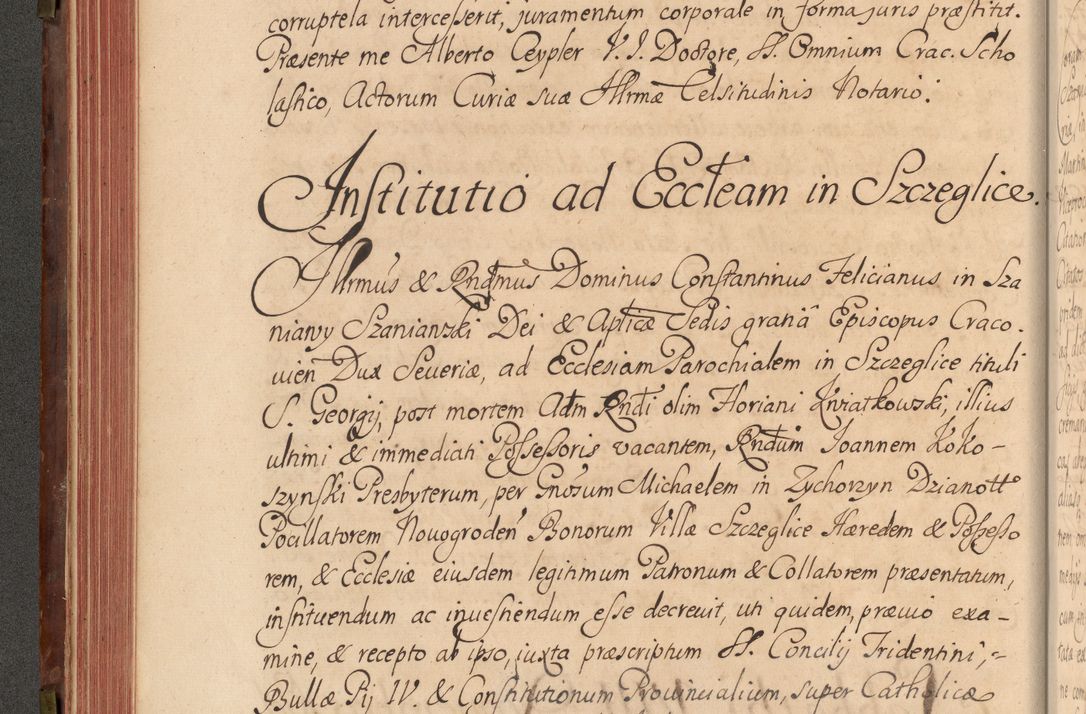 corruptela intercesserit, juramentum corporale in forma juris præstitit.
Præsente me Alberto Ceypler V. J. Doctore, SS. Omnium Crac. Scho
lastico, Actorum Curiæ suæ Illrmæ Celsitudinis Notario.
Institutio ad Eccleam in Szczeglice.
Illrmus & Rndmus Dominus Constantinus Felicianus in Sza
niawy Szaniawski Dei & Aplicæ Sedis gratiâ Episcopus Craco.
vien Dux Severiæ, ad Ecclesiam Parochialem in Szczeglice tituli
S. Georgij, post mortem Adm Rndi olim Floriani Kwiatkowski, illius
ultimi & immediati Possessoris vacantem, Rndum Joannem Koko-
szynski Presbyterum, per Gnosum Michaelem in Zychorzyn Dzianott
Pocillatorem Novogroden Bonorum Villæ Szczeglice Hæredem & Possesso
rem, & Ecclesiæ eiusdem legitimum Patronum & Collatorem præsentatum,
instituendum ac investiendum esse decrevit, uti quidem, prævio exa-
mine, & recepto ab ipso, iuxta præscriptum SS. Concilij Tridentini,
Bullæ Pij IV. & Constitutionum Provincialium, super Catholicæ